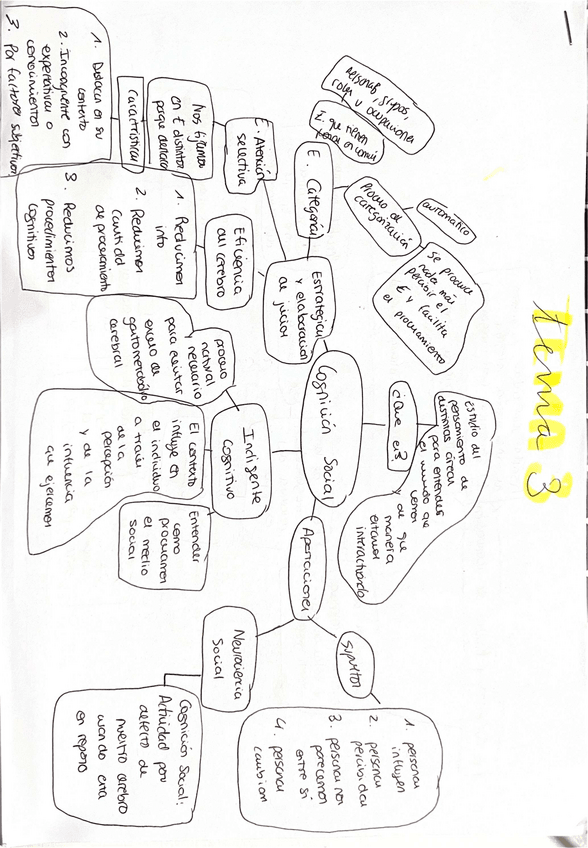 tema 3
Cognición Social
¿Que es?
Estudio del
pensamiento de
distintas áreas
para entender
el mundo que
vemos
y de que
manera
estamos
interactuando
Estrategias
y elaboración
de juicios
E. Categorial
Proceso de
categorización
automático
se produce
nada más
percibir el
E y facilita
el procesamiento
Personas, grupos,
roles u ocupaciones
E. que tienen
en común
E. Atención
selectiva
Nos fijamos
en E distintos
porque destacan
características
1. Destaca en su
contexto
2. Incongruente con
expectativas o
conocimientos
3. Por factores subjetivos
Eficiencia
del cerebro
1. Reducimos
info
2. Reducimos
cantidad
de procesamiento
3. Reducimos
procedimientos
cognitivos
Indigente
Cognitivo
proceso
natural
necesario
para evitar
exceso de
gasto metabólico
cerebral
El contexto
influye en
el individuo
a través
de la
percepción
y de la
influencia
que ejercemos
Entender
como
procesamos
el medio
social
Aportaciones
Supuestos
1. personas
influyen
2. personas
percibidas
3. personas nos
parecemos
entre sí
4. personas
cambian
Neurociencia
Social
Cognición Social:
Actividad por
defecto de
nuestro cerebro
cuando está
en reposo